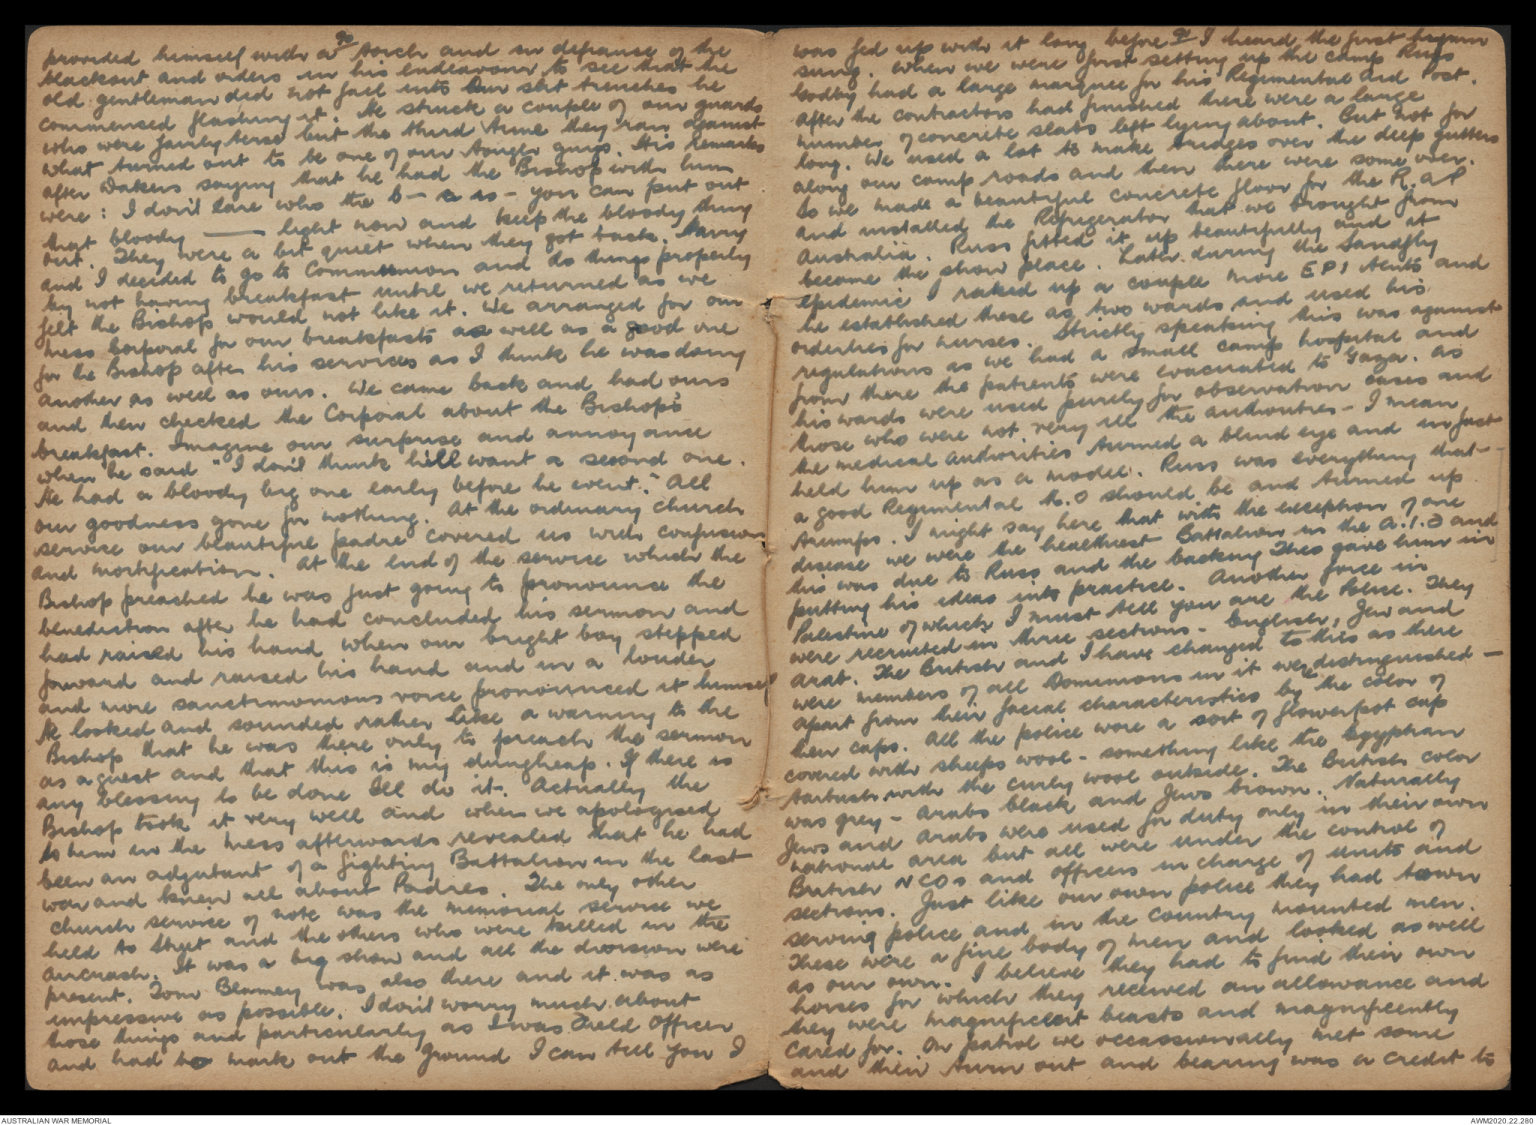 90
provided himself with a torch and in defiance of the
blackout and orders in his endeavour to see that the
old gentleman did not fall into our slit trenches he
commenced flashing it. He struck a couple of our guards
who were fairly terse but the third time they ran against
what turned out to be one of our tougher guys. His remarks
after Dakers saying that he had the Bishop with him
were: I don't care who the b- it is - you can put out
that bloody —— light now and keep the bloody thing
out. They were a bit quiet when they got back. Harry
and I decided to go to Communion and do things properly
by not having breakfast until we returned as we
felt the Bishop would not like it. We arranged for our
mess Corporal for our breakfasts as well as a good one
for the Bishop after his services as I think he was doing
another as well as ours. We came back and had ours
and then checked the Corporal about the Bishop's
breakfast. Imagine our surprise and annoyance
when he said "I don't think he'll want a second one.
He had a bloody big one early before he went." All
our goodness gone for nothing. At the ordinary church
service our beautiful padre covered us with confusion
and mortification. At the end of the service which the
Bishop preached he was just going to pronounce the
benediction after he had concluded his sermon and
had raised his hand when our bright boy stepped
forward and raised his hand and in a louder
and more sanctimonious voice pronounced it himself
He looked and sounded rather like a warning to the
Bishop that he was there only to preach the sermon
as a guest and that this is my dungheap. If there is
any blessing to be done Ill do it. Actually the
Bishop took it very well and when we apologised
to him in the mess afterwards revealed that he had
been an adjutant of a fighting Battalion in the last
war and knew all about Padres. The only other
church service of note was the memorial service we
held to Stput and the others who were killed in the
aircrash. It was a big show and all the division were
present. Tom Blamey was also there and it was as
impressive as possible. I don't worry much about
those things and particularly as I was Field Officer
and had to mark out the ground I can tell you I
91
was fed up with it long before I heard the first hymn
sung. When we were first setting up the camp Russ
Godby had a large marquee for his Regimental Aid Post.
After the contractors had finished there were a large
number of concrete slabs left lying about. But not for
long. We used a lot to make bridges over the deep gutters
along our camp roads and then there were some over.
So we made a beautiful concrete floor for the R.A.P
and installed the Refrigerator that we brought from
Australia. Russ fitted it up beautifully and it
became the show place. Later during the Sandfly
epidemic I raked up a couple more EPI tents and
he established these as two wards and used his
orderlies for nurses. Strictly speaking this was against
regulations as we had a small camp hospital and
from there the patients were evacuated to Gaza. As
his wards were used purely for observation cases and
those who were not very ill the authorities - I mean
the medical authorities turned a blind eye and in fact
held him up as a model. Russ was everything that
a good Regimental M.O should be and turned up
trumps. I might say here that with the exception of one
disease we were the healthiest Battalion in the A.I.F and
this was due to Russ and the backing Theo gave him in
putting his ideas into practice. Another force in
Palestine of which I must tell you are the Police. They
were recruited in three sections - English, Jew and
Arab. The British and I have changed to this as there
were members of all Dominions in it were distinguished -
apart from their facial characteristics by the color of
their caps. All the police wore a sort of flowerpot cap
covered with sheeps wool - something like the Egyptian
tarbush with the curly wool outside. The British color
was grey - Arabs black and Jews brown. Naturally
Jews and Arabs were used for duty only in their own
national area but all were under the control of
British NCOs and officers in charge of units and
sections. Just like our own police they had town
serving police and in the country mounted men.
These were a fine body of men and looked as well
as our own. I believe they had to find their own
horses for which they received an allowance and
they were magnificent beasts and magnificently
cared for. On patrol we occassionally met some
and their turn out and bearing was a credit to
AUSTRALIAN WAR MEMORIAL
AWM2020.22.280